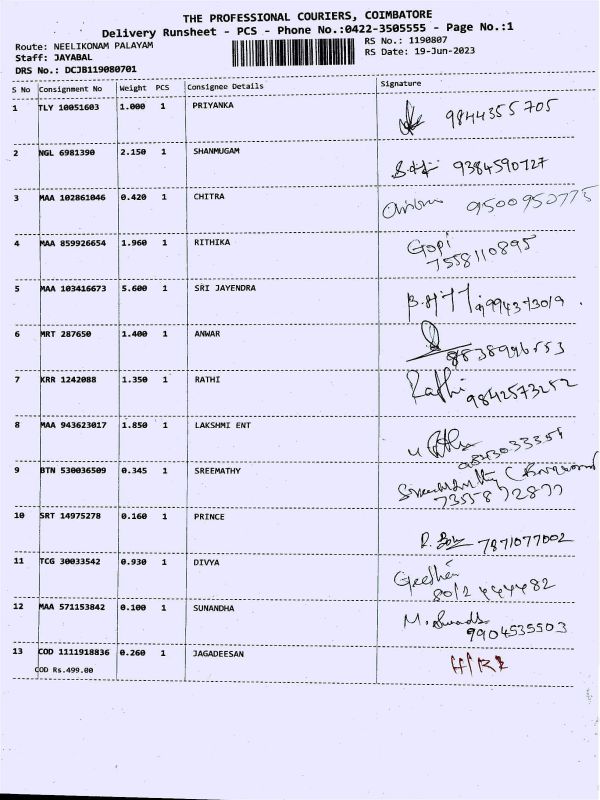 THE PROFESSIONAL COURIERS, COIMBATORE
Delivery Runsheet - PCS - Phone No.:0422-3505555 - Page No.:1
Route: NEELIKONAM PALAYAM
RS No.: 1190807
Staff: JAYABAL
RS Date: 19-Jun-2023
DRS No.: DCJB119080701
S No Consignment No Weight PCS Consignee Details Signature
1 TLY 10051603 1.000 1 PRIYANKA 9844355705
2 NGL 6981390 2.150 1 SHANMUGAM 9384590727
3 MAA 102861046 0.420 1 CHITRA 9500950775
4 MAA 859926654 1.960 1 RITHIKA Gopi
7558110895
5 MAA 103416673 5.600 1 SRI JAYENDRA 9994373019
6 MRT 287650 1.400 1 ANWAR
7 KRR 1242088 1.350 1 RATHI Rathi
9842573252
8 MAA 943623017 1.850 1 LAKSHMI ENT
9 BTN 530036509 0.345 1 SREEMATHY
10 SRT 14975278 0.160 1 PRINCE 7871077002
11 TCG 30033542 0.930 1 DIVYA Geetha
8012444482
12 MAA 571153842 0.100 1 SUNANDHA
9904535503
13 COD 1111918836 0.260 1 JAGADEESAN
COD Rs.499.00